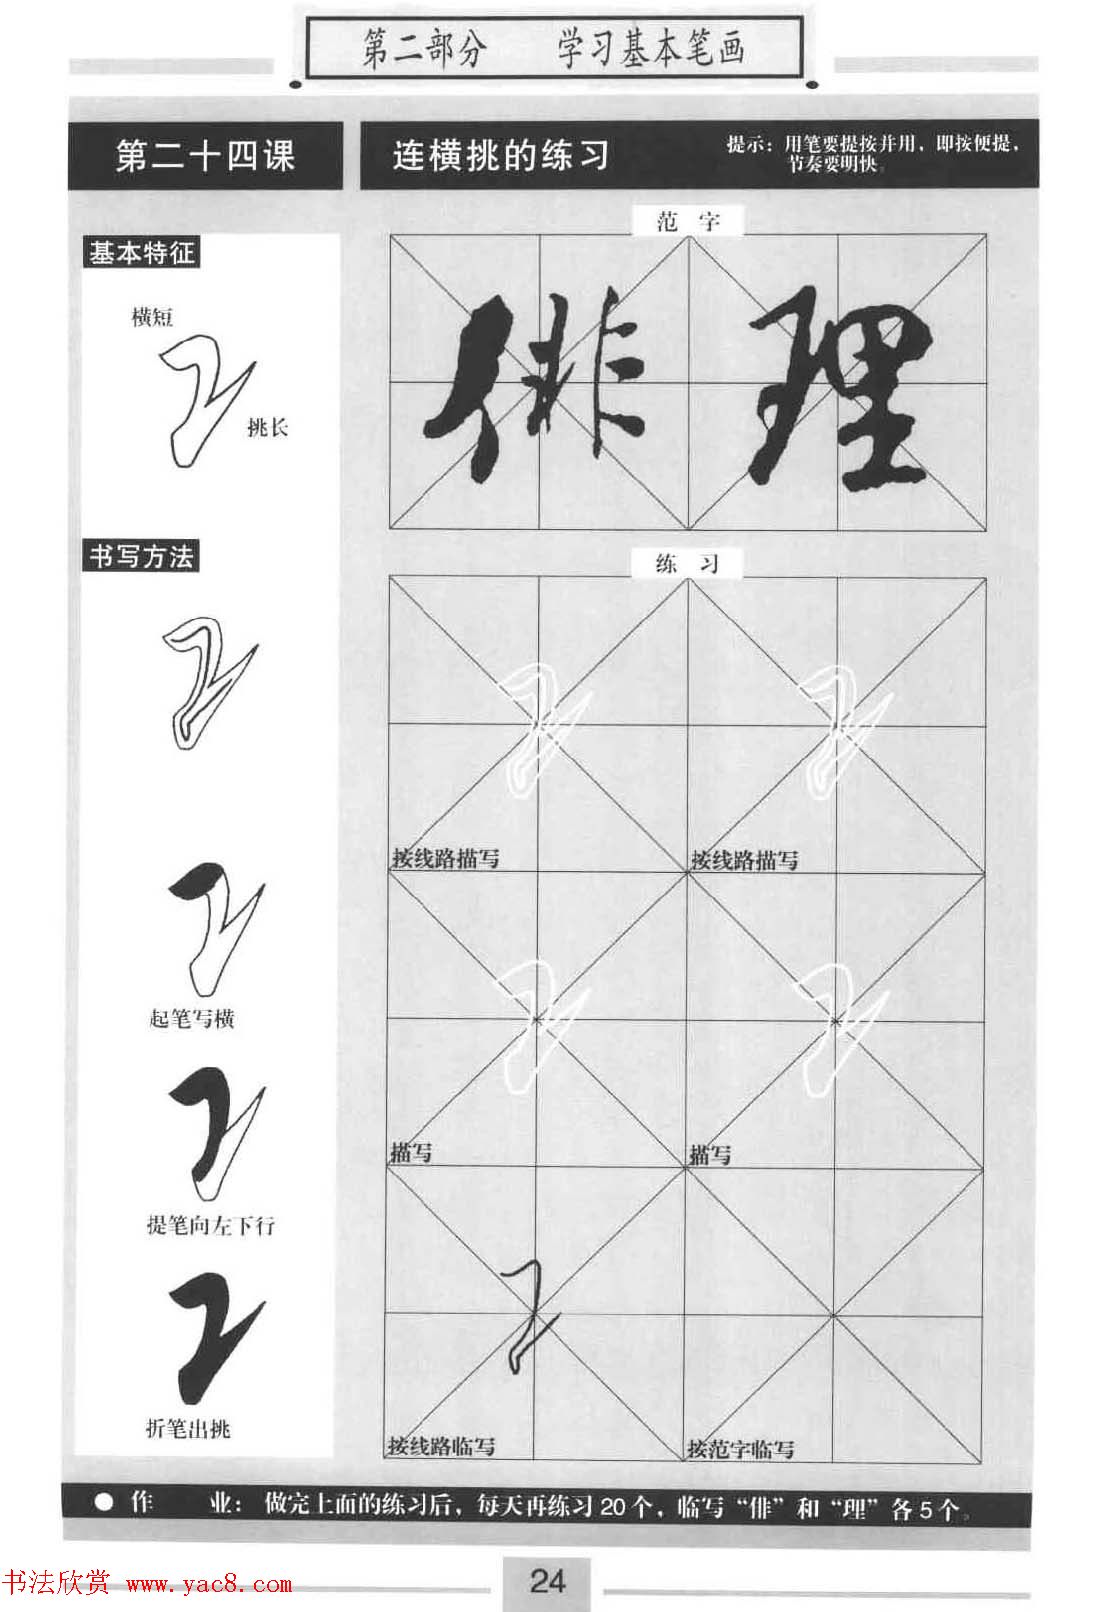 第二部分　　学习基本笔画
第二十四课
连横挑的练习
提示：用笔要提按并用，即按便提，
节奏要明快。
基本特征
横短
挑长
书写方法
起笔写横
提笔向左下行
折笔出挑
范 字
俳 理
练 习
按线路描写 按线路描写
描写 描写
按线路临写 按范字临写
● 作　业：做完上面的练习后，每天再练习20个，临写“俳”和“理”各5个。
24
书法欣赏 www.yac8.com